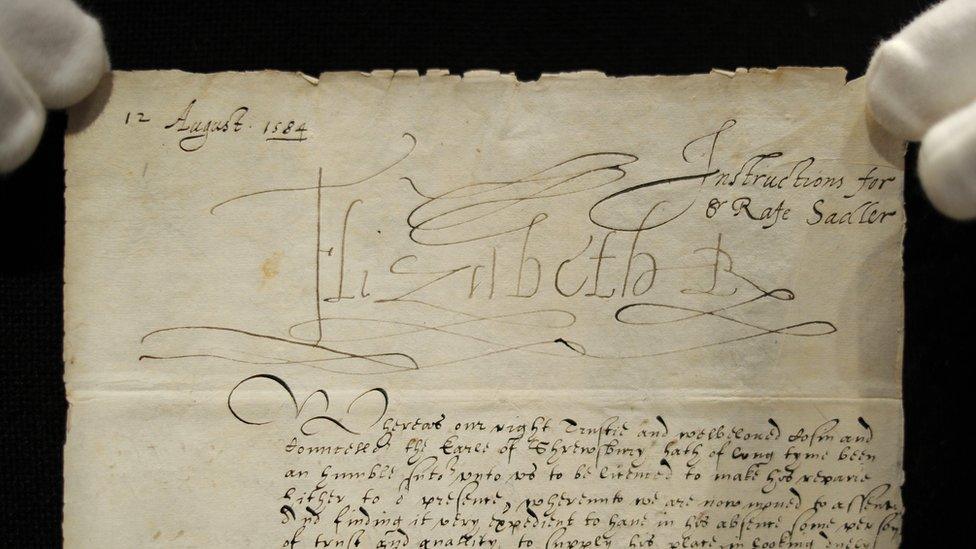 12 August 1584
Instructions for
Sr Rafe Sadler
Elizabeth R
Whereas our right Trustie and welbeloved Cosin and
Councello the Earle of Shrewsbury hath of long tyme been
an humble suto unto us to be licenced to make his repaire
hither to o presence, wherunto we are now moved to assent,
And finding it very expedient to have in his absence some person
of trust and quallity to supply his place in looking